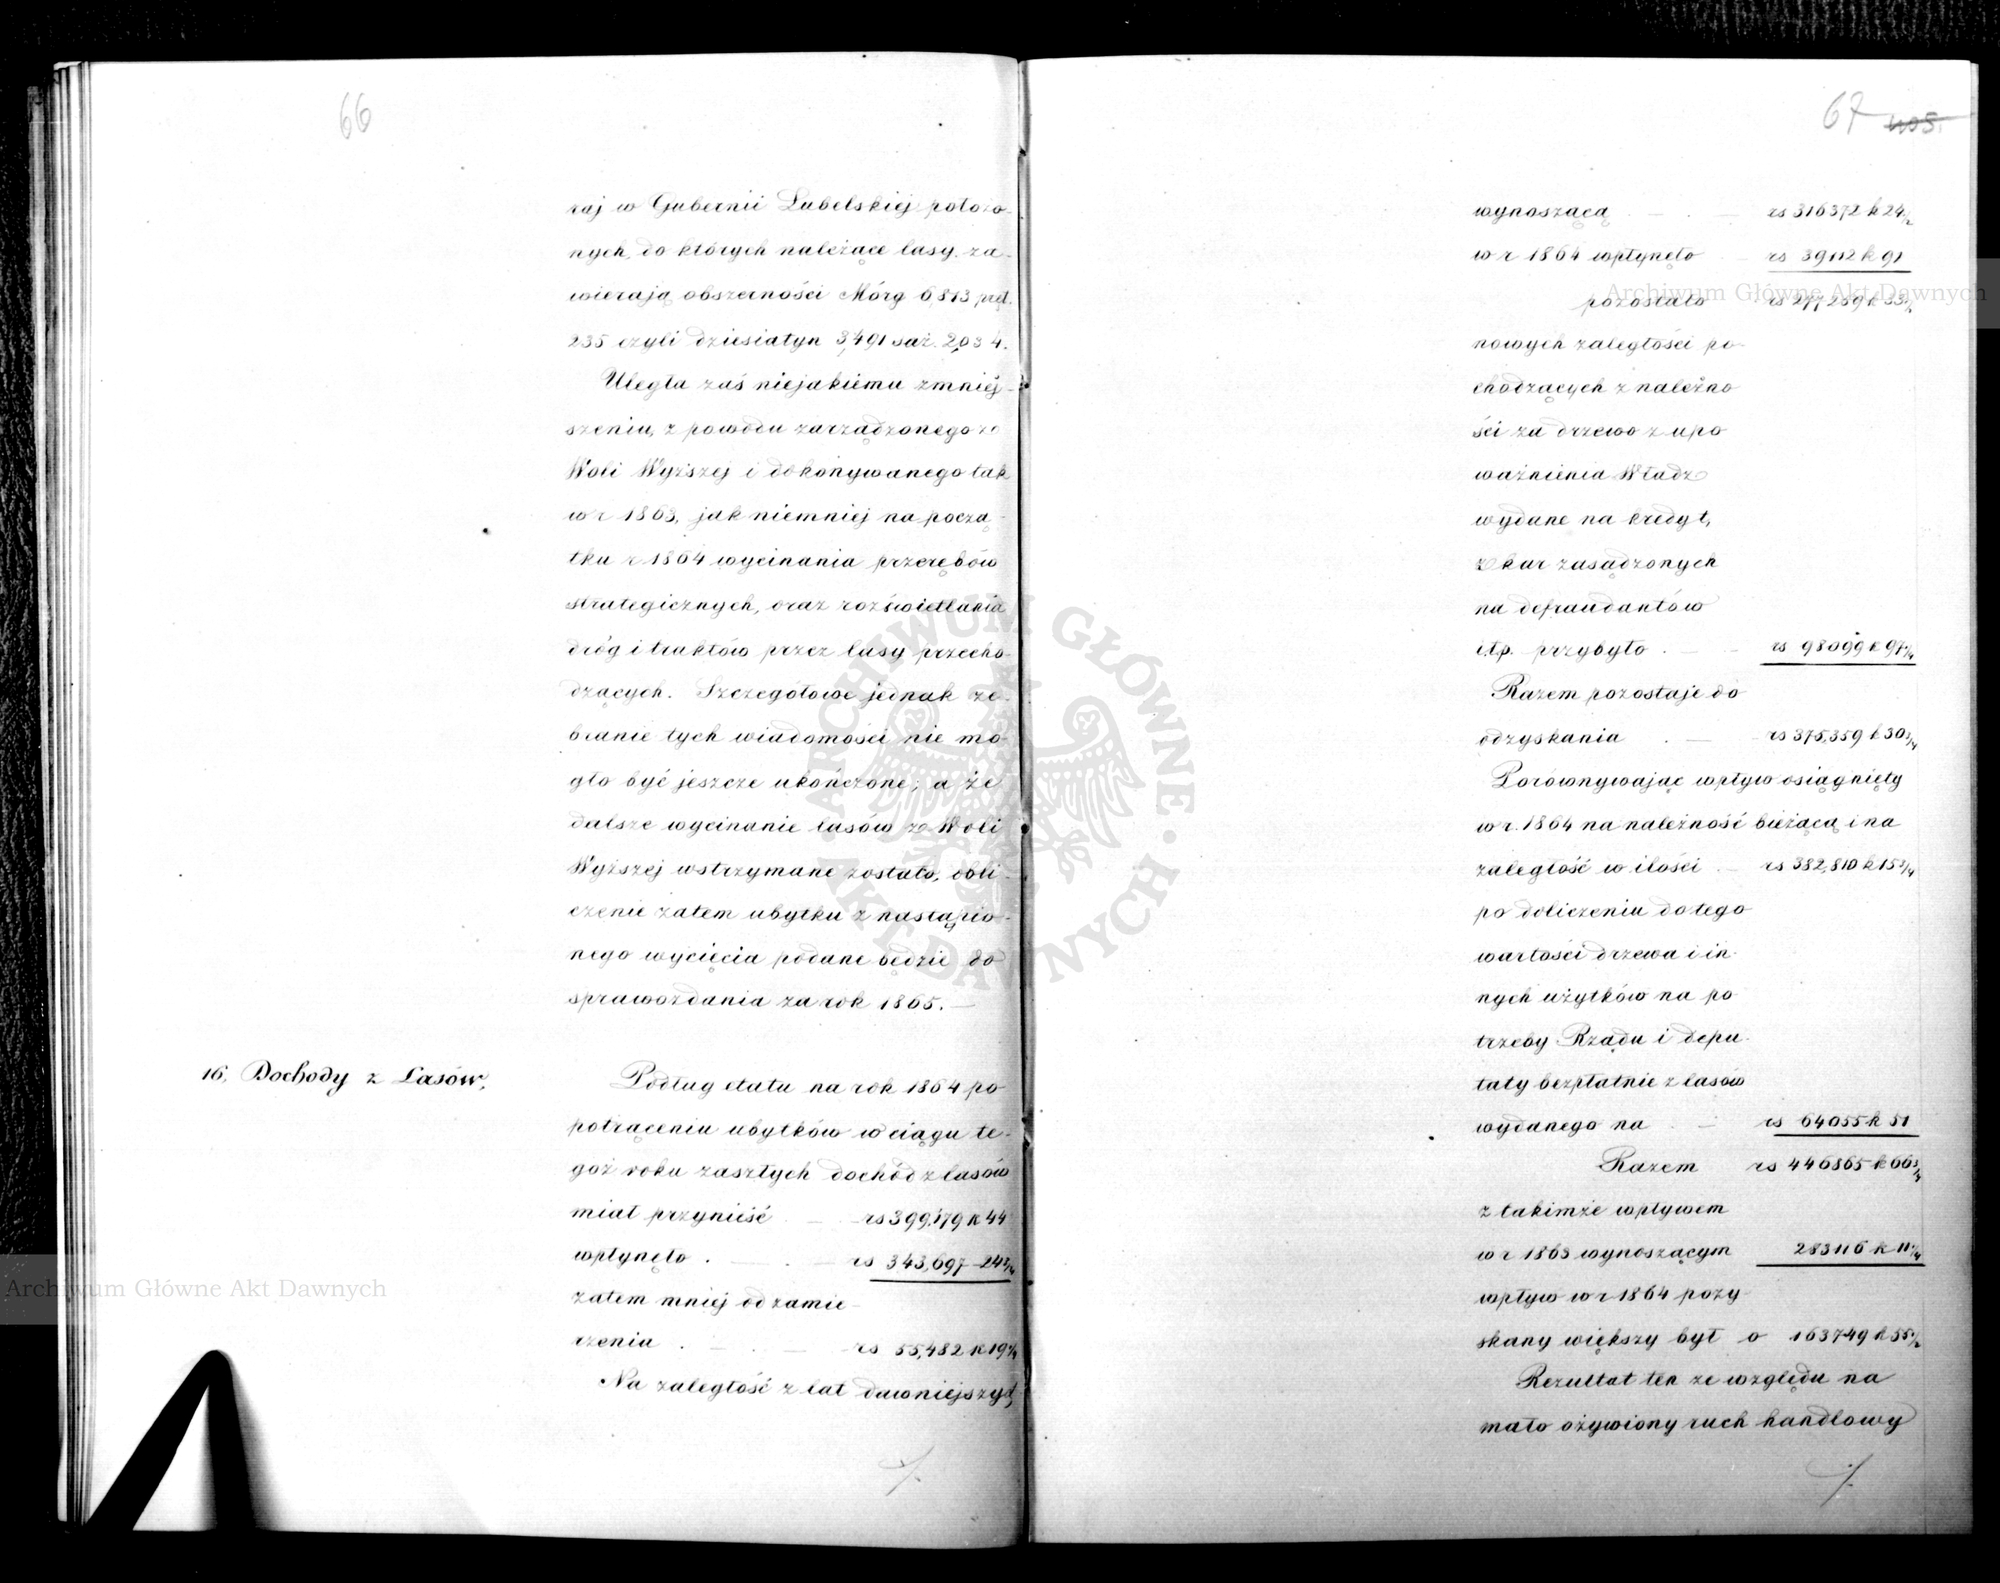 66
raj w Gubernii Lubelskiej położo-
nych, do których należące lasy za-
wierają obszerności Mórg 6,813 pręt.
235 czyli dziesiatyn 3,491 saż. 2,034.
Uległa zaś niejakiemu zmniej-
szeniu, z powodu zarządzonego z
Woli Wyższej i dokonywanego tak
w r 1863, jak niemniej na począ-
tku r 1864 wycinania przerębów
strategicznych, oraz rozświetlania
dróg i traktów przez lasy przecho-
dzących. Szczegółowe jednak ze-
branie tych wiadomości nie mo-
gło być jeszcze ukończone; a że
dalsze wycinanie lasów z Woli
Wyższej wstrzymane zostało, obli-
czenie zatem ubytku z nastąpio-
nego wycięcia podane będzie do
sprawozdania za rok 1865. —
16, Dochody z Lasów,
Podług etatu na rok 1864 po
potrąceniu ubytków w ciągu te-
goż roku zaszłych dochód z lasów
miał przynieść rs 399,179 k 44
wpłynęło . — . — rs 343,697 — 24 3/4
zatem mniej od zamie-
rzenia . — . — rs 55,482 k 19 1/4
Na zaległość z lat dawniejszych
67 405.
wynoszącą — . — rs 316372 k 24 1/2
w r 1864 wpłynęło — rs 39112 k 91
pozostało rs 277259 k 33 1/2
nowych zaległości po-
chodzących z należno
ści za drzewo z upo
ważnienia Władz
wydane na kredyt,
z kar zasądzonych
na defraudantów
itp. przybyło . — rs 98099 k 97 1/4
Razem pozostaje do
odzyskania . — rs 375,359 k 30 3/4
Porównywając wpływ osiągnięty
w r. 1864 na należność bieżącą i na
zaległość w ilości . — rs 382,810 k 15 3/4
po doliczeniu do tego
wartości drzewa i in-
nych użytków na po
trzeby Rządu i depu-
taty bezpłatnie z lasów
wydanego na . — rs 64055 k 51
Razem rs 446865 k 66 3/4
z takimże wpływem
w r 1863 wynoszącym 283116 k 11 1/4
wpływ w r 1864 pozy-
skany większy był o 163749 k 55 1/2
Rezultat ten ze względu na
mało ożywiony ruch handlowy
Archiwum Główne Akt Dawnych
Archiwum Główne Akt Dawnych
ARCHIWUM GŁÓWNE AKT DAWNYCH